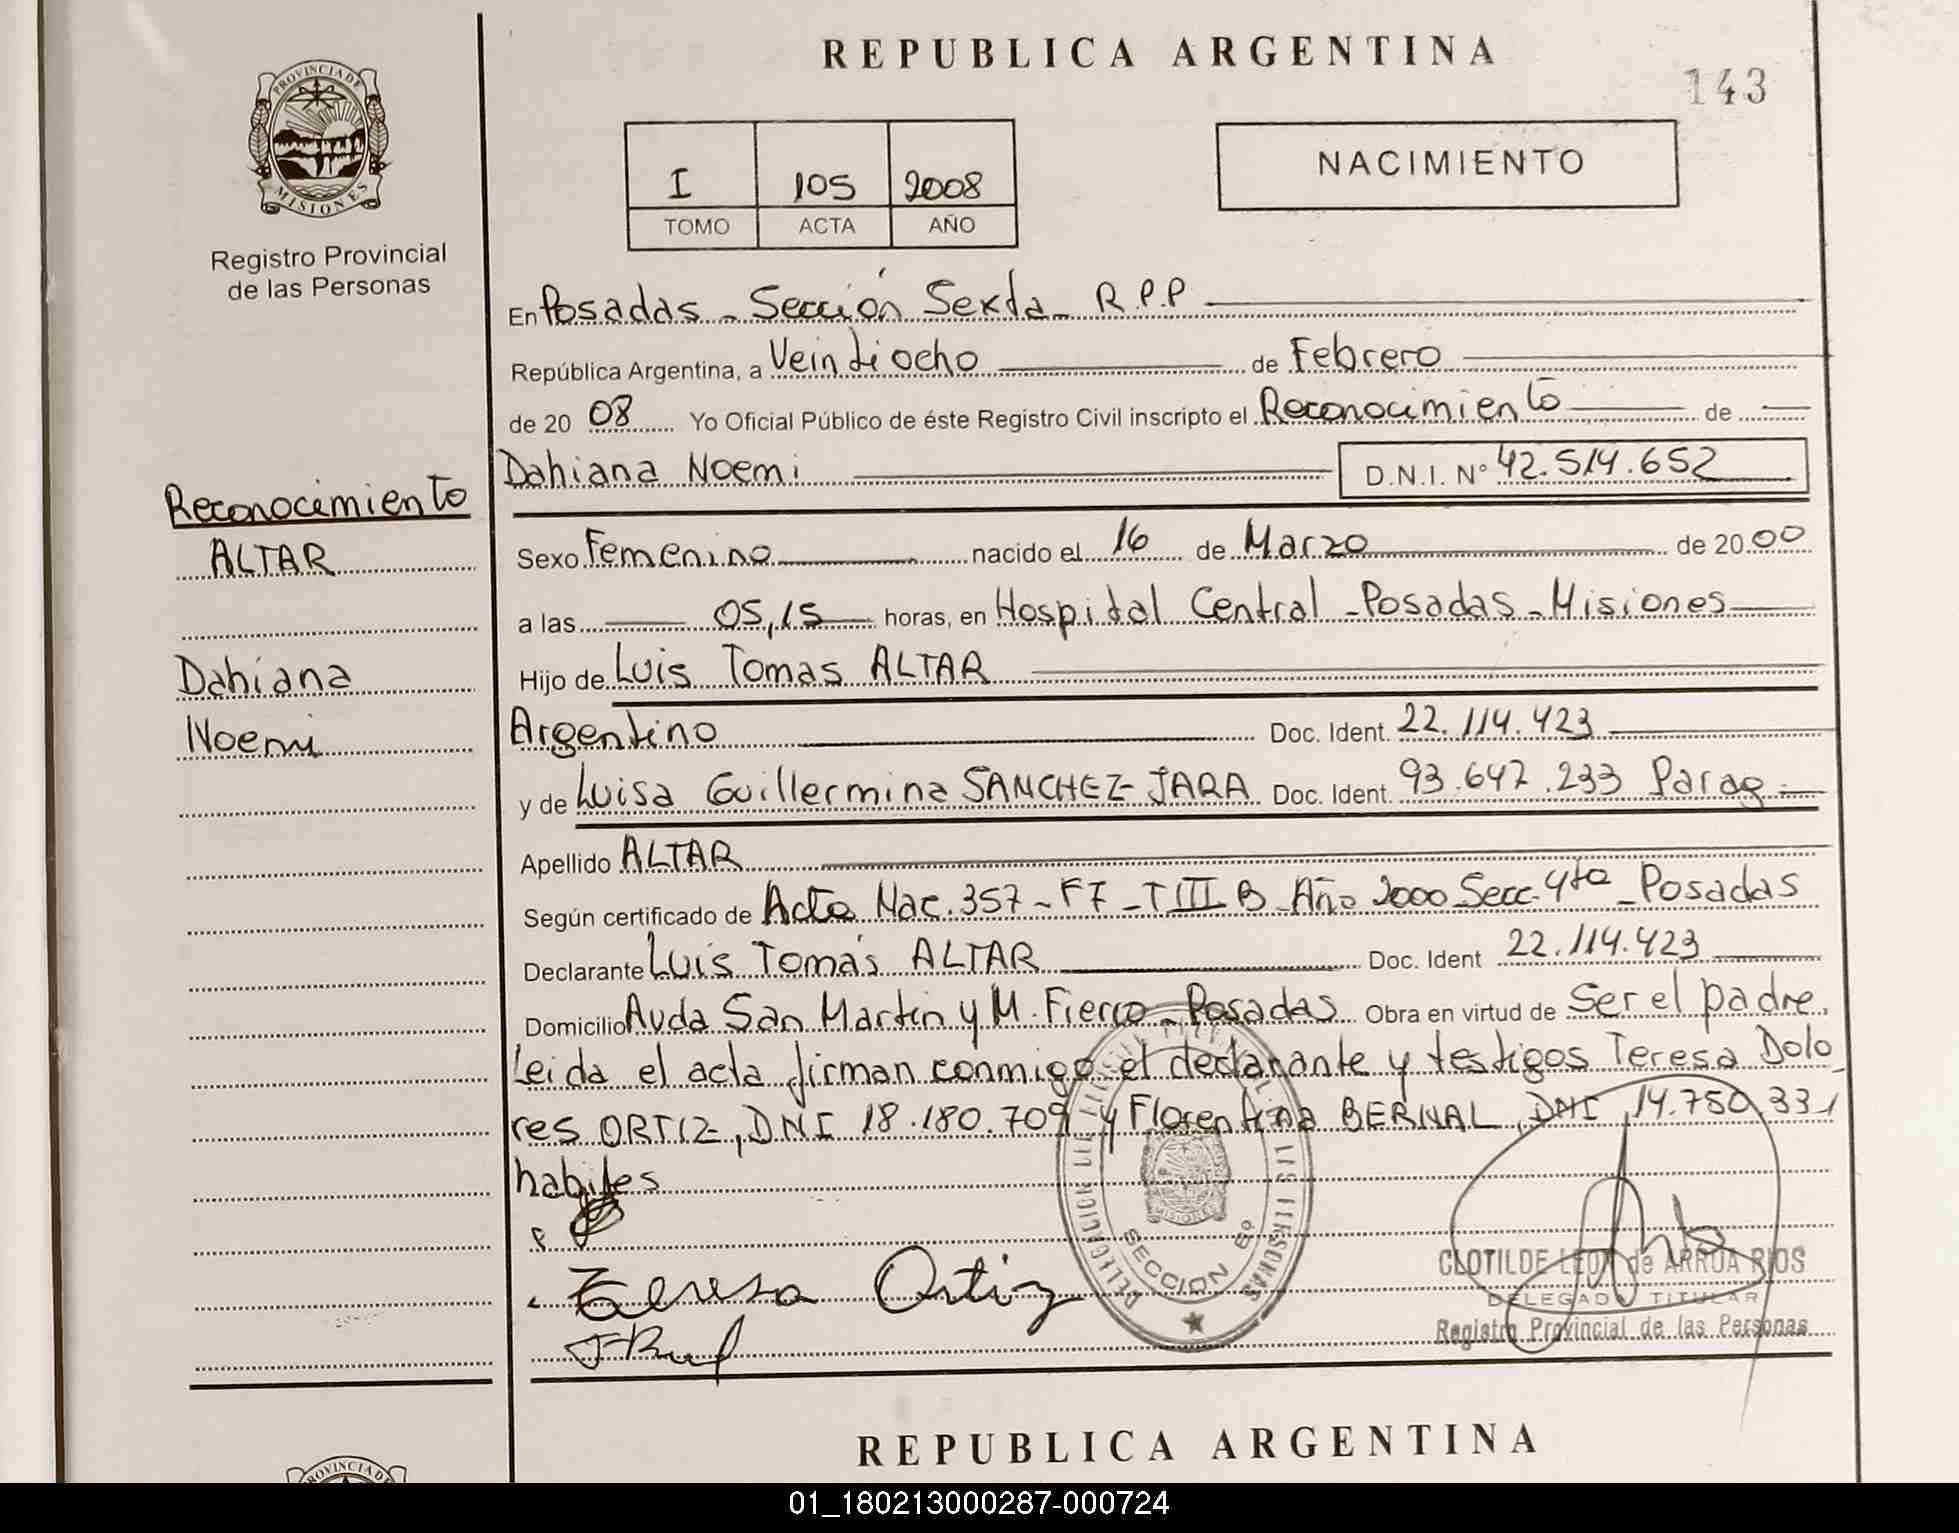 REPUBLICA ARGENTINA
143
PROVINCIA DE
MISIONES
Registro Provincial
de las Personas
I 105 2008
TOMO ACTA AÑO
NACIMIENTO
En Posadas - Sección Sexta - R.P.P
República Argentina, a Veintiocho de Febrero
de 20 08 Yo Oficial Público de éste Registro Civil inscripto el Reconocimiento de
Dahiana Noemi D.N.I. Nº 42.514.652
Reconocimiento
ALTAR
Dahiana
Noemi
Sexo Femenino nacido el 16 de Marzo de 20 00
a las 05,15 horas, en Hospital Central - Posadas - Misiones
Hijo de Luis Tomas ALTAR
Argentino Doc. Ident. 22.114.423
y de Luisa Guillermina SANCHEZ JARA Doc. Ident. 93.647.233 Parag
Apellido ALTAR
Según certificado de Acta Nac. 357 - F7 - TIII B Año 2000 Secc. 4ta - Posadas
Declarante Luis Tomás ALTAR Doc. Ident 22.114.423
Domicilio Avda San Martin y M. Fierro - Posadas Obra en virtud de Ser el padre.
Leida el acta firman conmigo el declarante y testigos Teresa Dolo
res ORTIZ, DNI 18.180.709 y Florentina BERNAL, DNI 14.750.331
habiles
Teresa Ortiz
SECCION 6º
MISIONES
CLOTILDE LEON de ARRUA RIOS
DELEGADA TITULAR
Registro Provincial de las Personas
REPUBLICA ARGENTINA
PROVINCIA D
01_180213000287-000724